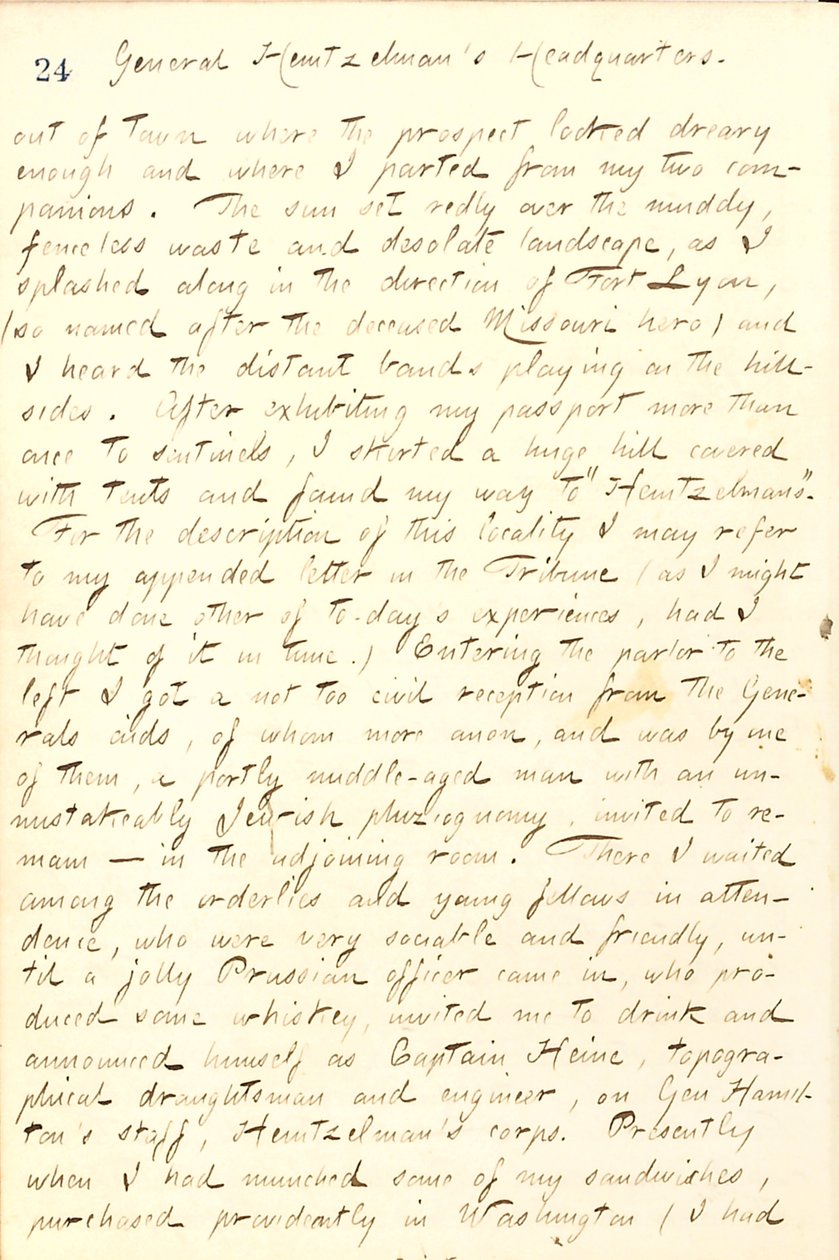 24 General Heintzelman's Headquarters.
out of town where the prospect looked dreary
enough and where I parted from my two com-
panions. The sun set redly over the muddy,
fenceless waste and desolate landscape, as I
splashed along in the direction of Fort Lyon,
(so named after the deceased Missouri hero) and
I heard the distant bands playing on the hill-
sides. After exhibiting my passport more than
once to sentinels, I skirted a huge hill covered
with tents and found my way to "Heintzelman's".
For the description of this locality I may refer
to my appended letter in the Tribune (as I might
have done other of to-day's experiences, had I
thought of it in time.) Entering the parlor to the
left I got a not too civil reception from the Gene-
rals aids, of whom more anon, and was by one
of them, a portly middle-aged man with an un-
mistakeably Jewish phiziognomy, invited to re-
main — in the adjoining room. There I waited
among the orderlies and young fellows in atten-
dence, who were very sociable and friendly, un-
til a jolly Prussian officer came in, who pro-
duced some whiskey, invited me to drink and
announced himself as Captain Heine, topogra-
phical draughtsman and engineer, on Gen Hamil-
ton's staff, Heintzelman's corps. Presently
when I had munched some of my sandwiches,
purchased providently in Washington (I had